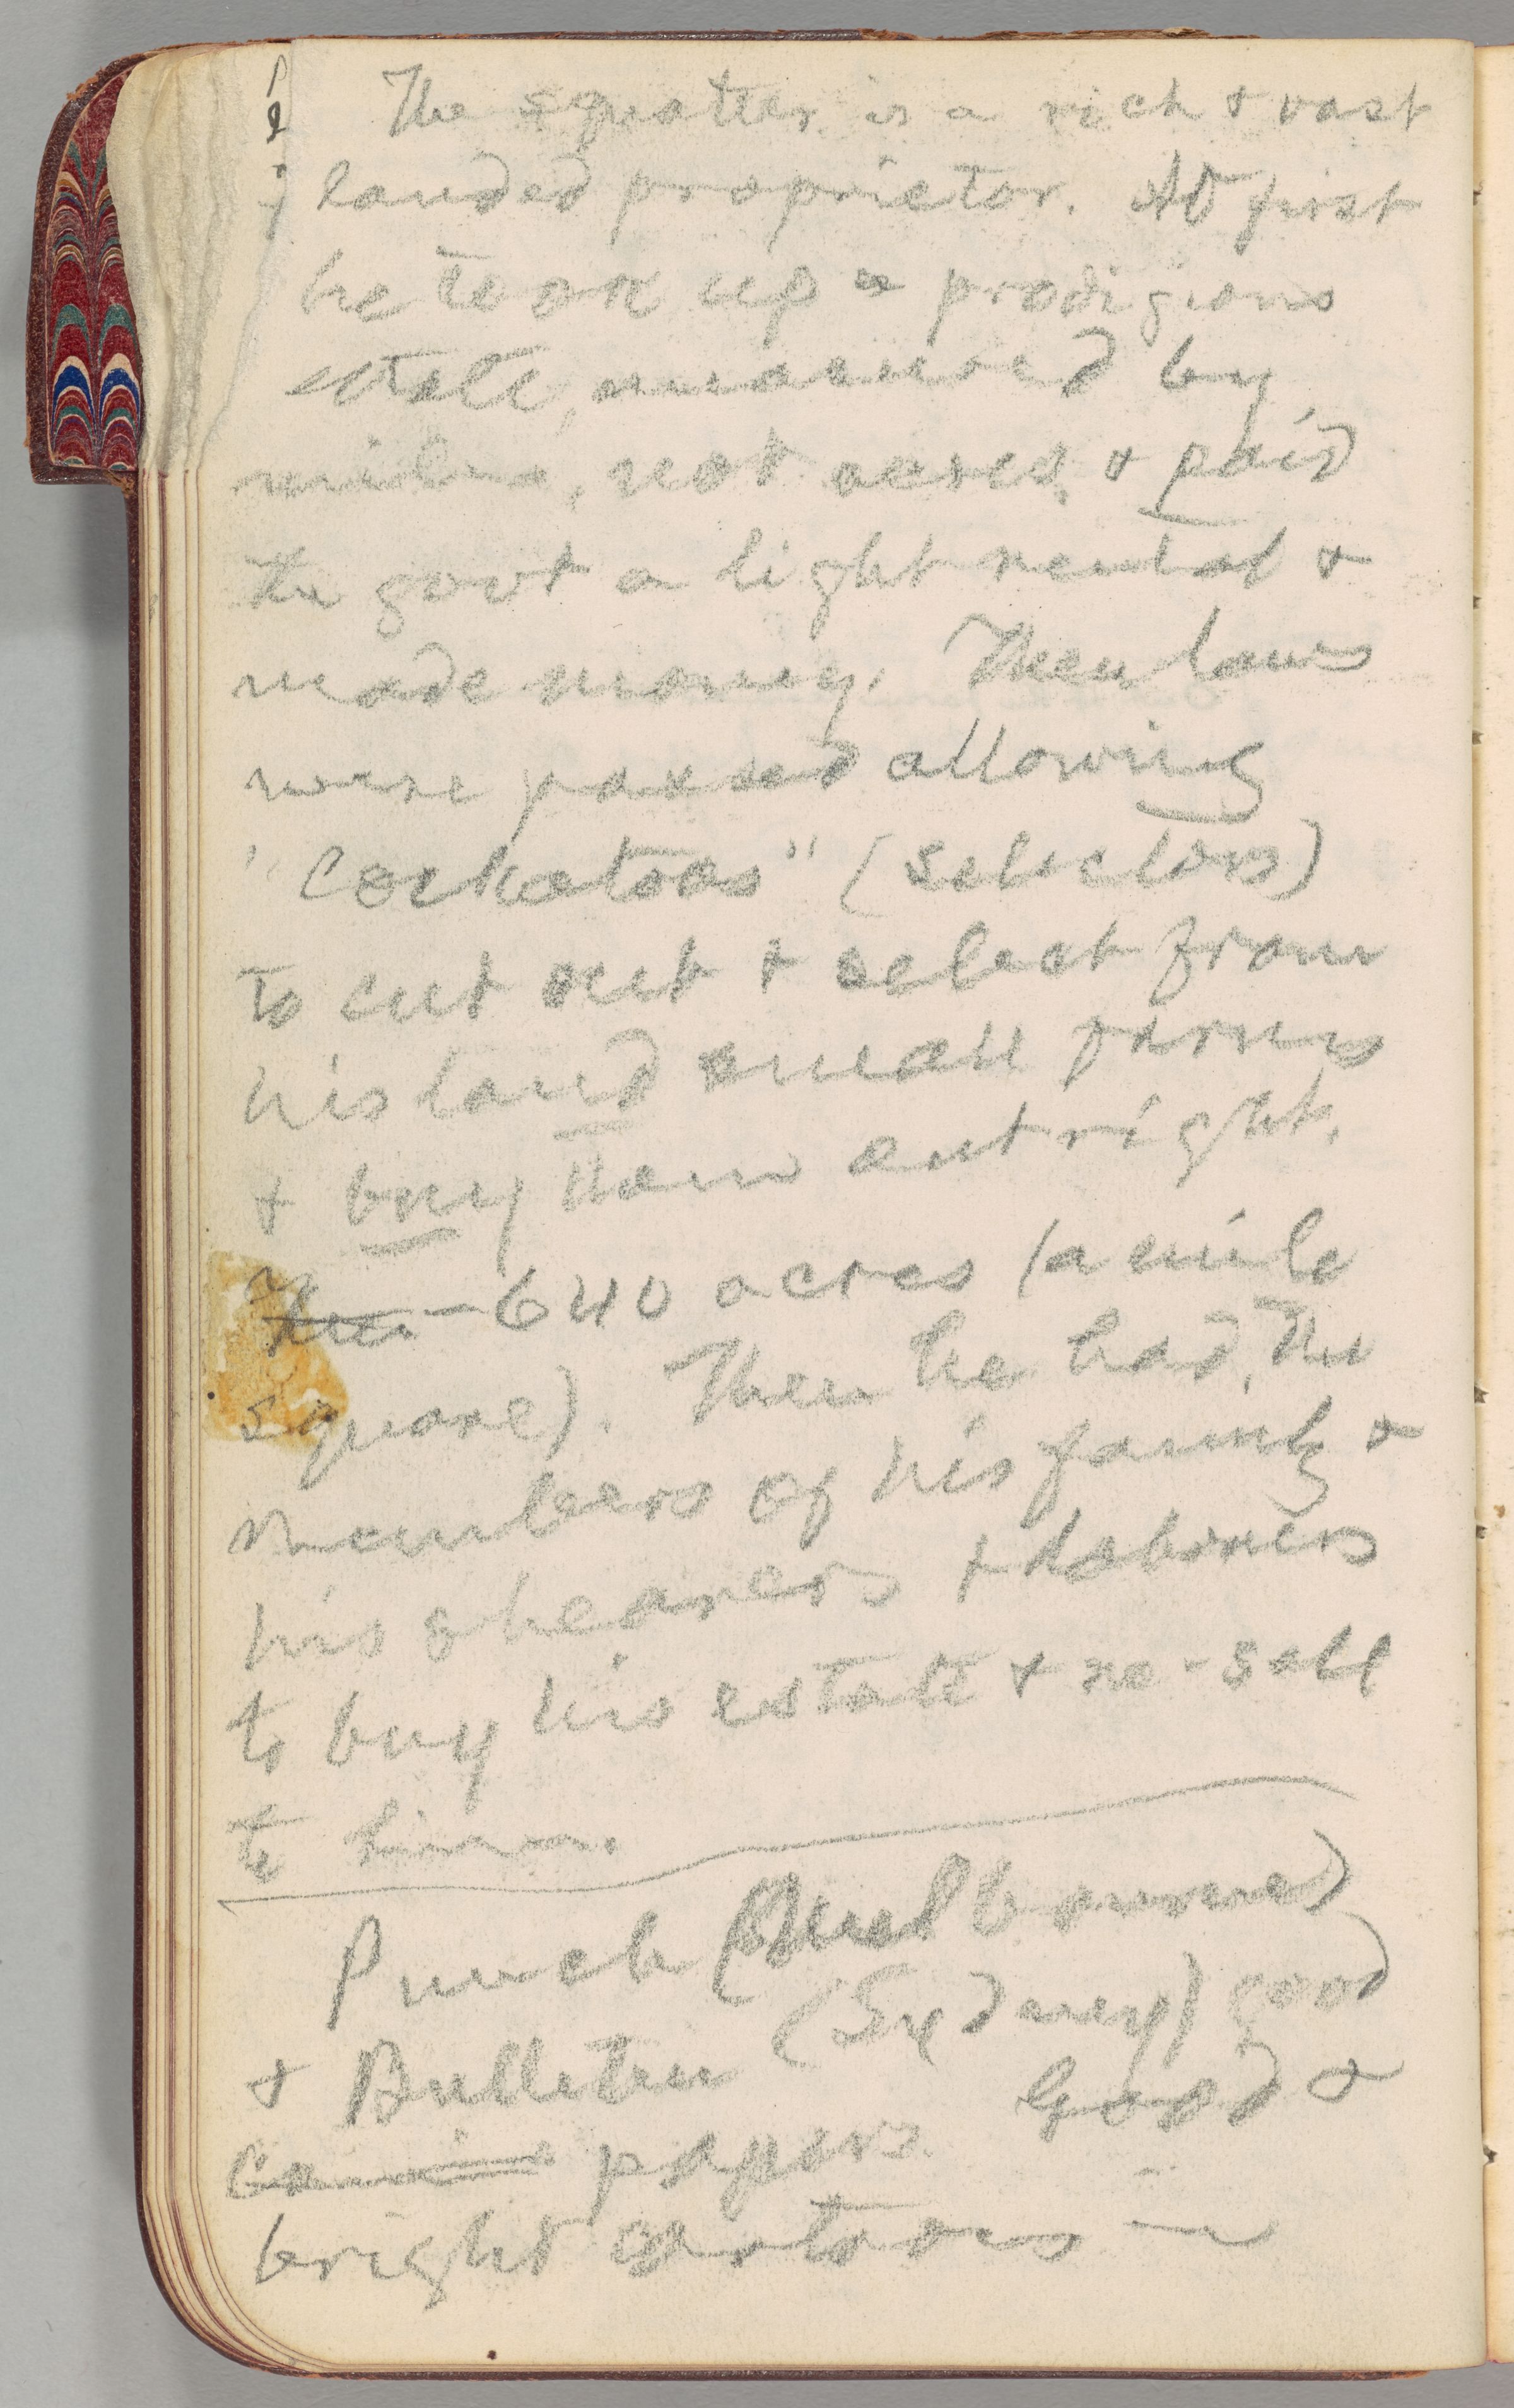 The squatter is a rich & vast
landed proprietor. At first
he took up a prodigious
estate, measured by
miles, not acres, & paid
the govt a light rental &
made money. Then laws
were passed allowing
"Cockatoos" (selectors)
to cut out & select from
his land small farms
& buy them outright.
640 acres (a mile
square). Then he had the
members of his family &
his shearers & laborers
to buy his estate & re-sell
to him.
Punch (Melbourne)
& Bulletin (Sydney) good
comic papers. Good &
bright cartoons —